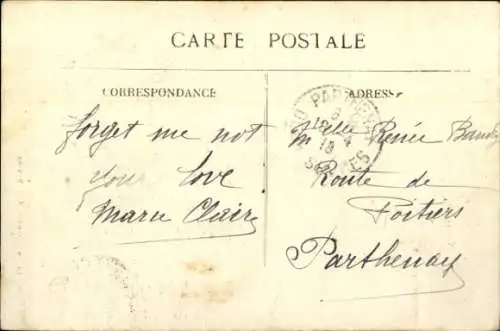 CARTE POSTALE
CORRESPONDANCE
forget me not
your love
Marie Claire
ADRESSE
Melle Renée
Route de
Poitiers
Parthenay